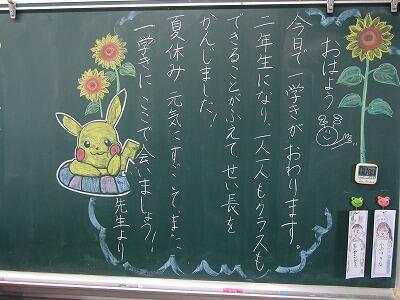 おはよう
今日で一学きがおわります。
二年生になり、一人一人もクラスも
できることがふえて、せい長を
かんしました！
夏休み 元気にすごして、また
一学きに ここで会いましょう！
先生より